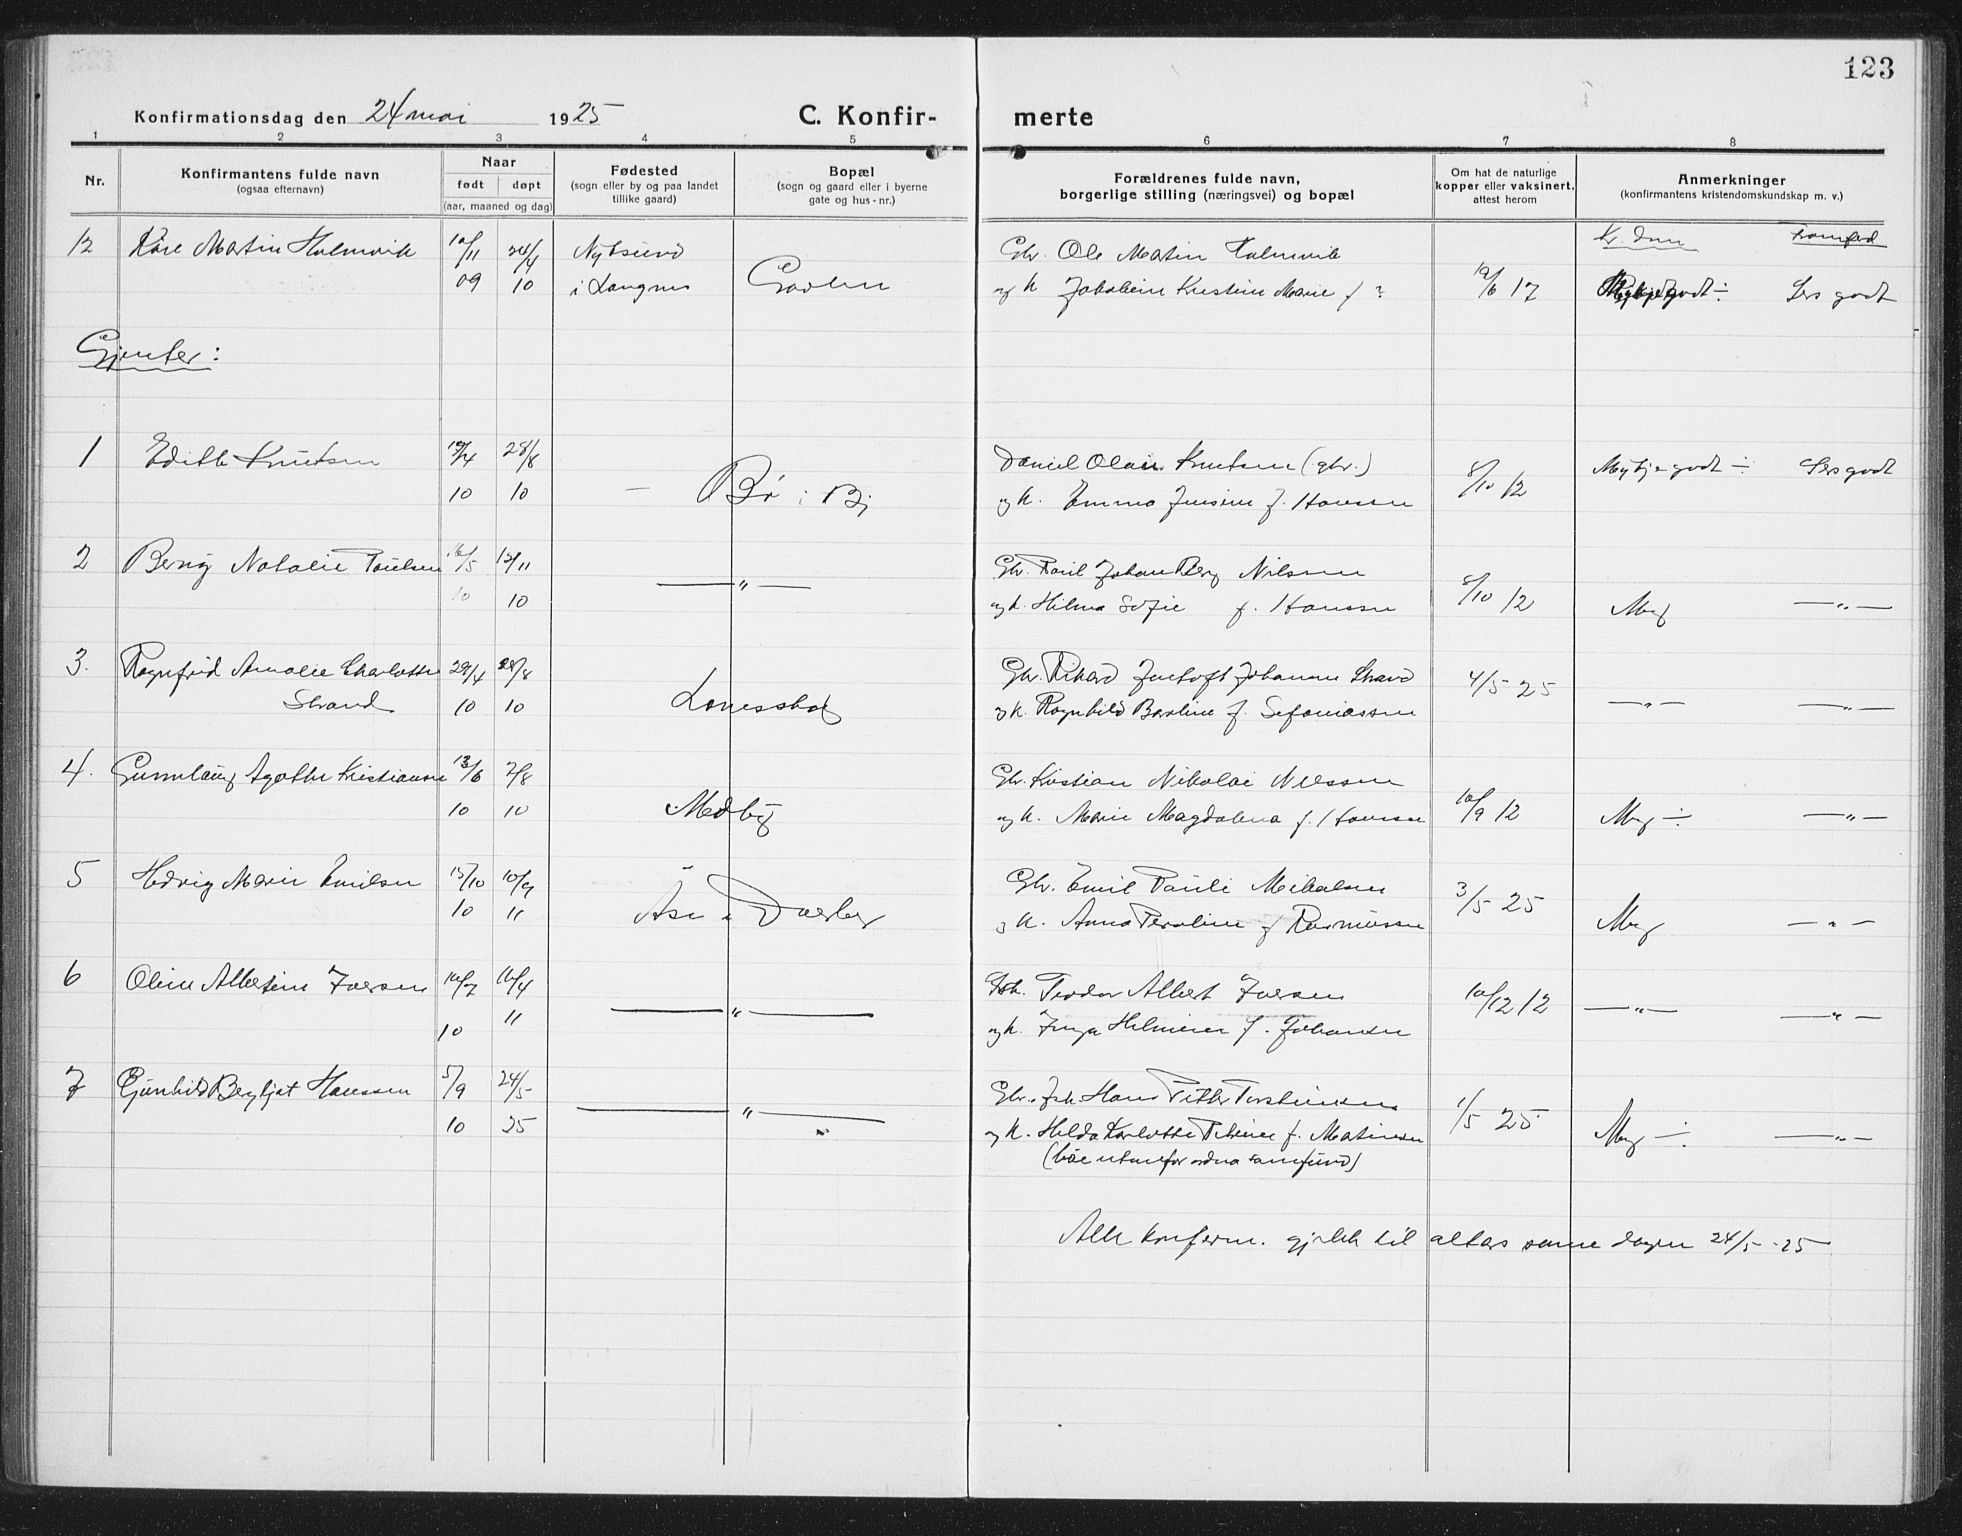 123
Konfirmationsdag den 24 mai 1925 C. Konfir- merte
1 2 3 4 5 6 7 8
Nr. Konfirmantens fulde navn (ogsaa efternavn) Naar født døpt (aar, maaned og dag) Fødested (sogn eller by og paa landet tillike gaard) Bopæl (sogn og gaard eller i byerne gate og hus-nr.) Forældrenes fulde navn, borgerlige stilling (næringsvei) og bopæl Om hat de naturlige kopper eller vaksinert, attest herom Anmerkninger (konfirmantens kristendomskundskap m. v.)
12 Kåre Martin Holmvik 10/11 24/4 Nyksund Gbr. Ole Martin Holmvik
09 10 i Langnes og k. Kristine Marie f ? 12/6 17 Sers godt
Gjenter:
1 Edith Knutsen 19/4 28/8 Daniel Olai Knutsen (gbr.) Mykje godt ÷ Sers godt
10 10 — Bø i Bj og k. Emma Jensine f. Hanssen 8/10 12
2 Berny Natalie Paulsen 16/5 13/11 —〃— Gbr. Paul Johan Berg Nilsen
10 10 og k. Hilma Sofie f. Hanssen 8/10 12 Mbg —〃—
3. Ragnfrid Amalie Charlotte 29/4 28/8 Gbr. Rikard Johannes Strand 4/5 25
Strand 10 10 og k. Ragnhild Bartine f. Sefaniassen —〃— —〃—
4. Gunnlaug Agathe Kristiansen 13/6 7/8 Gbr. Kristian Nikolai Nilssen
10 10 Medby og k. Marie Magdalena f. Hanssen 10/9 12 Mbg ÷ —〃—
5 Hedvig Marie Emilsen 15/10 10/9 Gbr. Emil Pauli Mikalsen 3/5 25
10 11 Åse i Dverberg og k. Anna Peroline f Rasmussen Mbg —〃—
6 Oline Albertine Iversen 10/7 16/4 —〃— Teodor Albert Iversen 10/12 12 —〃— —〃—
10 11 og k. Inga Helmine f. Johansen
7 Gunhild Bergljot Hanssen 5/9 24/5 —〃— Gbr. Hans Peter Torstensen 1/5 25
10 25 og k. Hilda Karlotte f. Matinsen Mbg ÷ —〃—
(båe utanfor ordna samfund)
Alle konferm. gjekk til altars same dagen 24/5-25